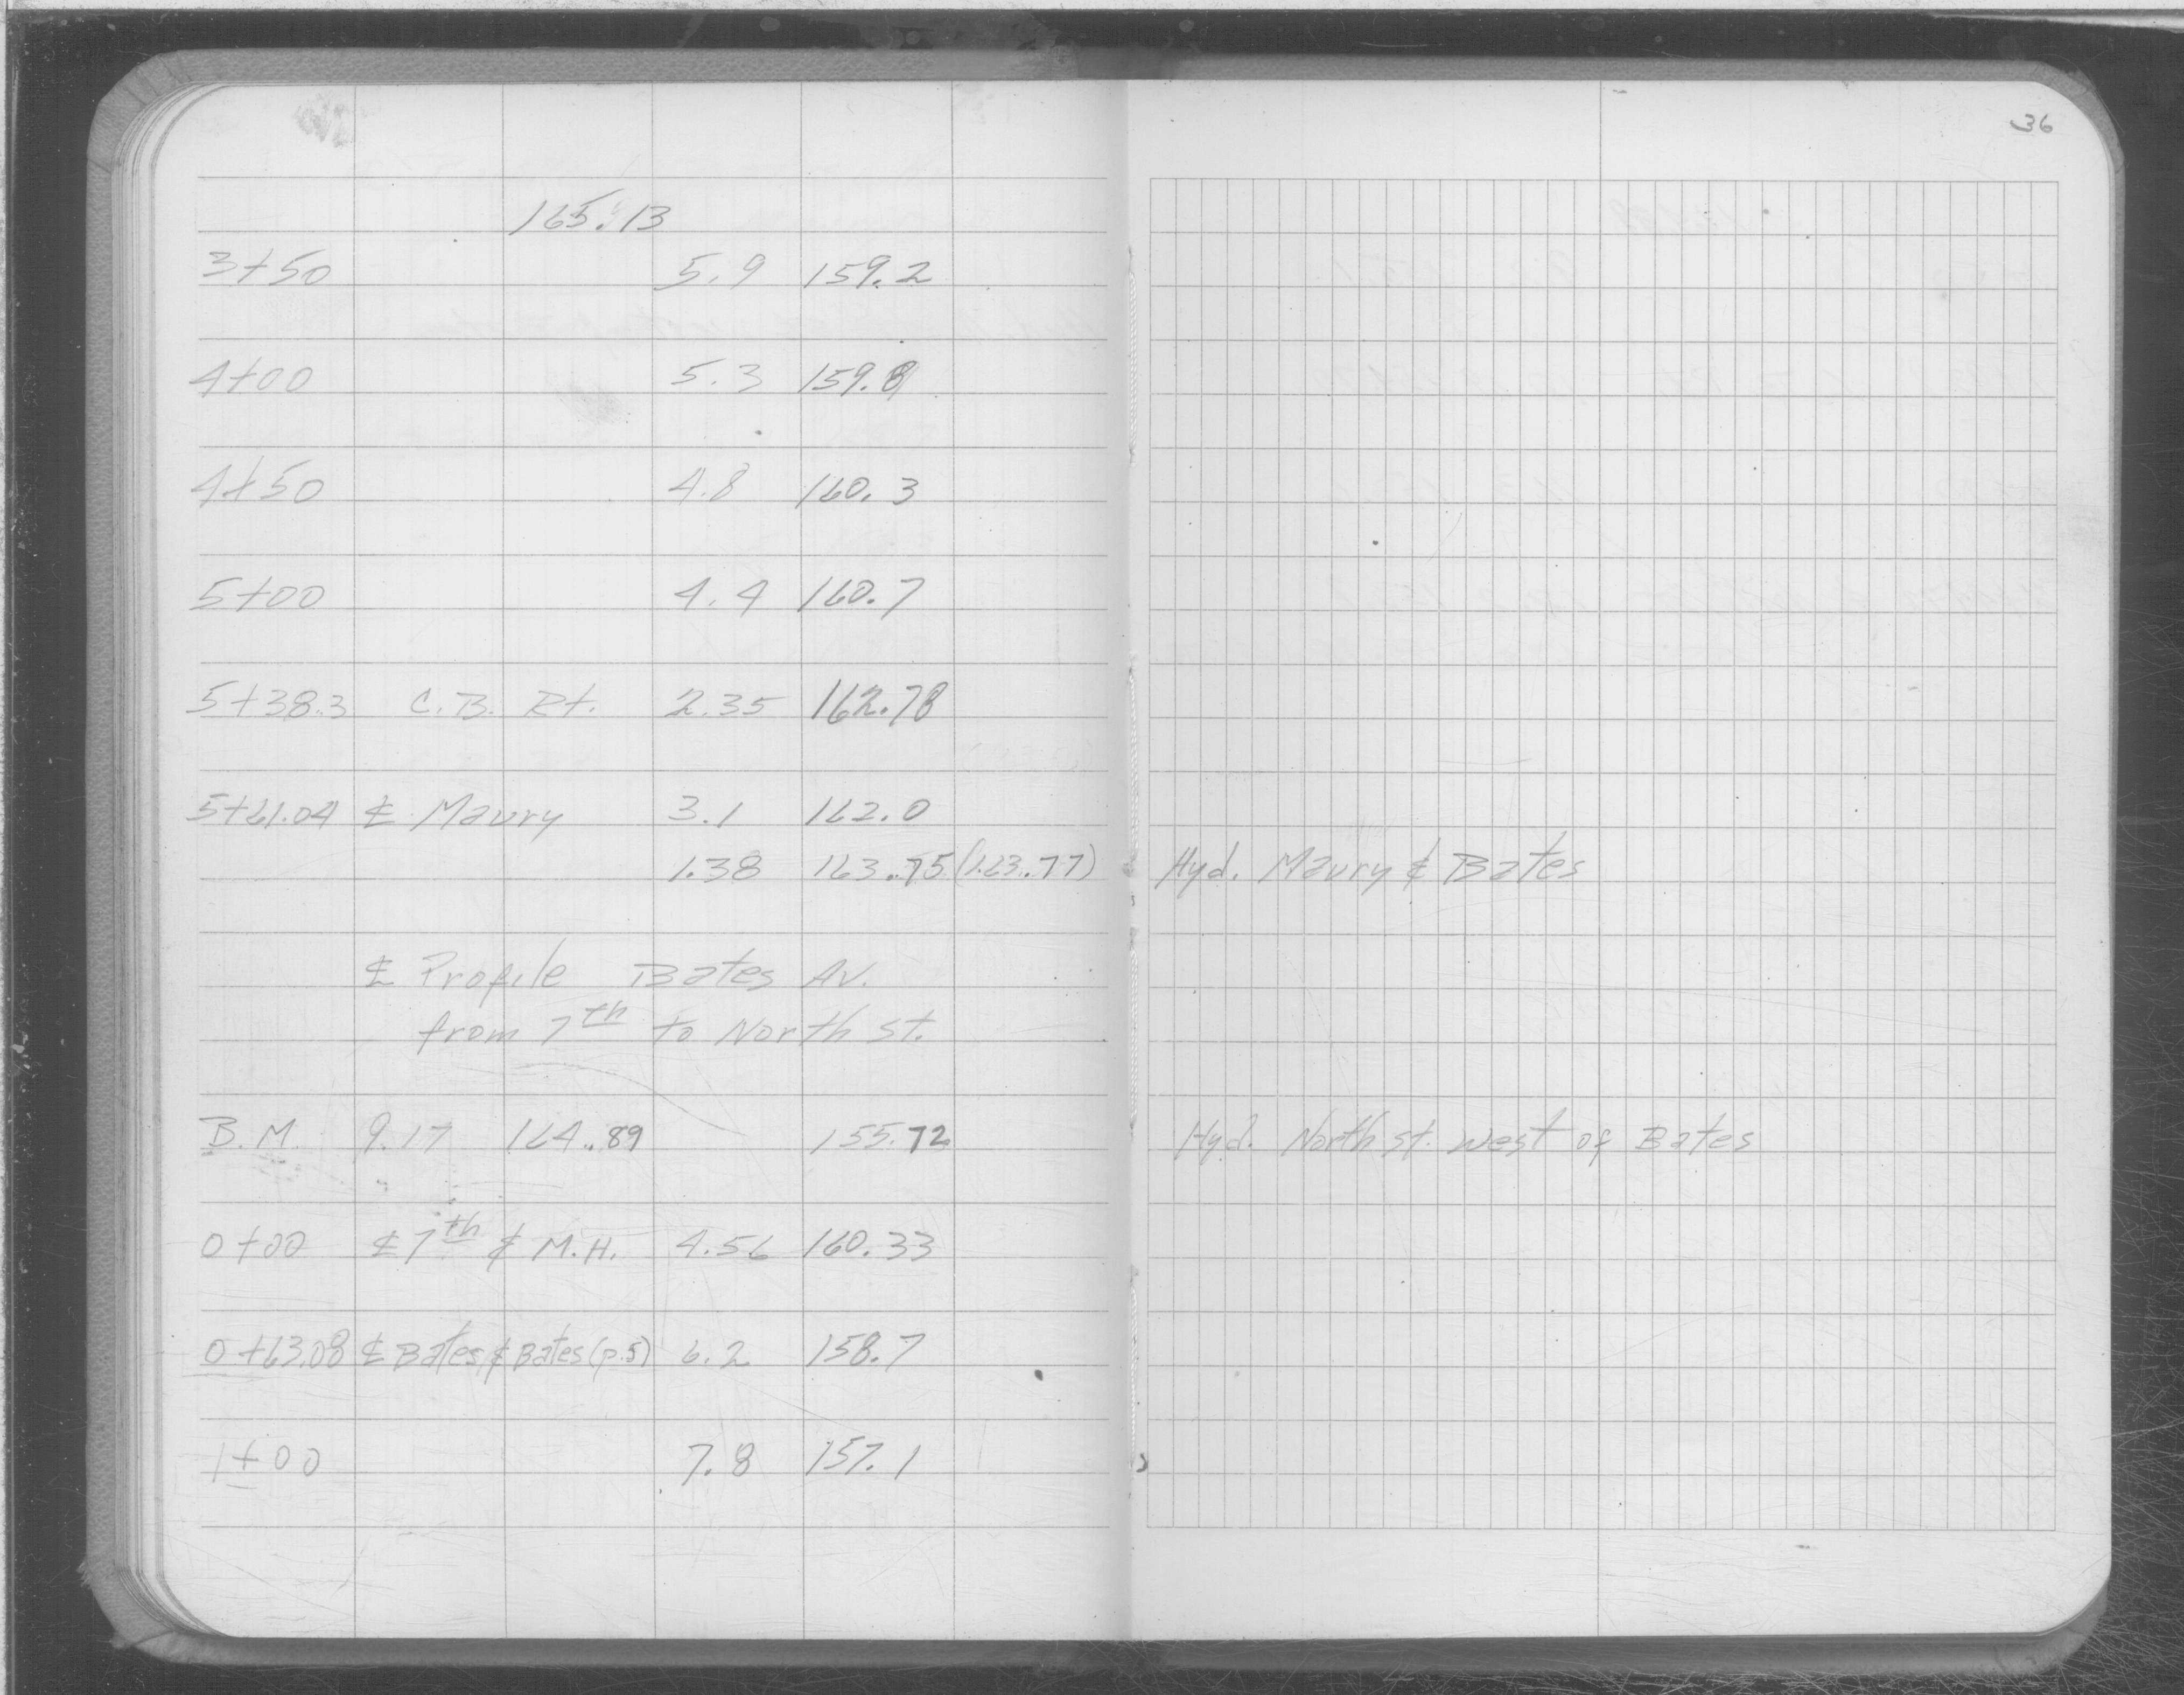 36
165.13
3+50 5.9 159.2
4+00 5.3 159.8
4+50 4.8 160.3
5+00 4.4 160.7
5+38.3 C.B. Rt. 2.35 162.78
5+61.04 ℄ Maury 3.1 162.0
1.38 163.75 (163.77) Hyd. Maury & Bates
℄ Profile Bates Av.
from 7th to North St.
B.M. 9.17 164.89 155.72 Hyd. North St. West of Bates
0+00 ℄ 7th & M.H. 4.56 160.33
0+63.08 ℄ Bates & Bates (p.5) 6.2 158.7
1+00 7.8 157.1